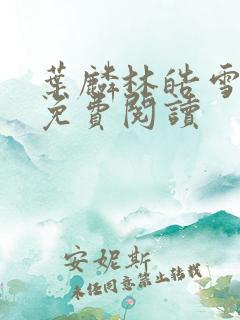 葉麟林皓雪
免費閱讀
安妮斯
未經同意禁止轉載